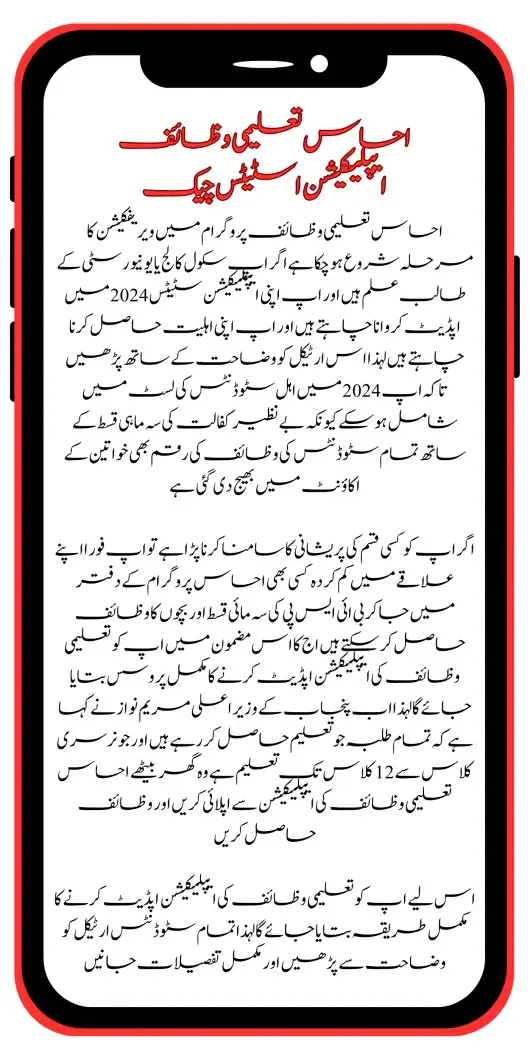 احساس تعلیمی وظائف
اپلیکیشن اسٹیٹس چیک
احساس تعلیمی وظائف پروگرام میں ویریفکیشن کا
مرحلہ شروع ہو چکا ہے اگر اپ سکول کالج یا یونیورسٹی کے
طالب علم ہیں اور اپ اپنی اپلیکیشن سٹیٹس 2024 میں
اپڈیٹ کروانا چاہتے ہیں اور اپ اپنی اہلیت حاصل کرنا
چاہتے ہیں لہذا اس ارٹیکل کو وضاحت کے ساتھ پڑھیں
تاکہ اپ 2024 میں اہل سٹوڈنٹس کی لسٹ میں
شامل ہو سکے کیونکہ بے نظیر کفالت کی سہ ماہی قسط کے
ساتھ تمام سٹوڈنٹس کی وظائف کی رقم بھی خواتین کے
اکاؤنٹ میں بھیج دی گئی ہے
اگر اپ کو کسی قسم کی پریشانی کا سامنا کرنا پڑا ہے تو اپ فورا اپنے
علاقے میں کم کردہ کسی بھی احساس پروگرام کے دفتر
میں جا کر بی ائی ایس پی کی سہ مائی قسط اور بچوں کا وظائف
حاصل کر سکتے ہیں اج کا اس مضمون میں اپ کو تعلیمی
وظائف کی اپلیکیشن اپڈیٹ کرنے کا مکمل پروسس بتایا
جائے گا لہذا اب پنجاب کے وزیراعلی مریم نواز نے کہا
ہے کہ تمام طلبہ جو تعلیم حاصل کر رہے ہیں اور جو نرسری
کلاس سے 12 کلاس تک تعلیم ہے وہ گھر بیٹھے احساس
تعلیمی وظائف کی اپلیکیشن سے اپلائی کریں اور وظائف
حاصل کریں
اس لیے اپ کو تعلیمی وظائف کی اپلیکیشن اپڈیٹ کرنے کا
مکمل طریقہ بتایا جائے گا لہذا تمام سٹوڈنٹس ارٹیکل کو
وضاحت سے پڑھیں اور مکمل تفصیلات جانیں